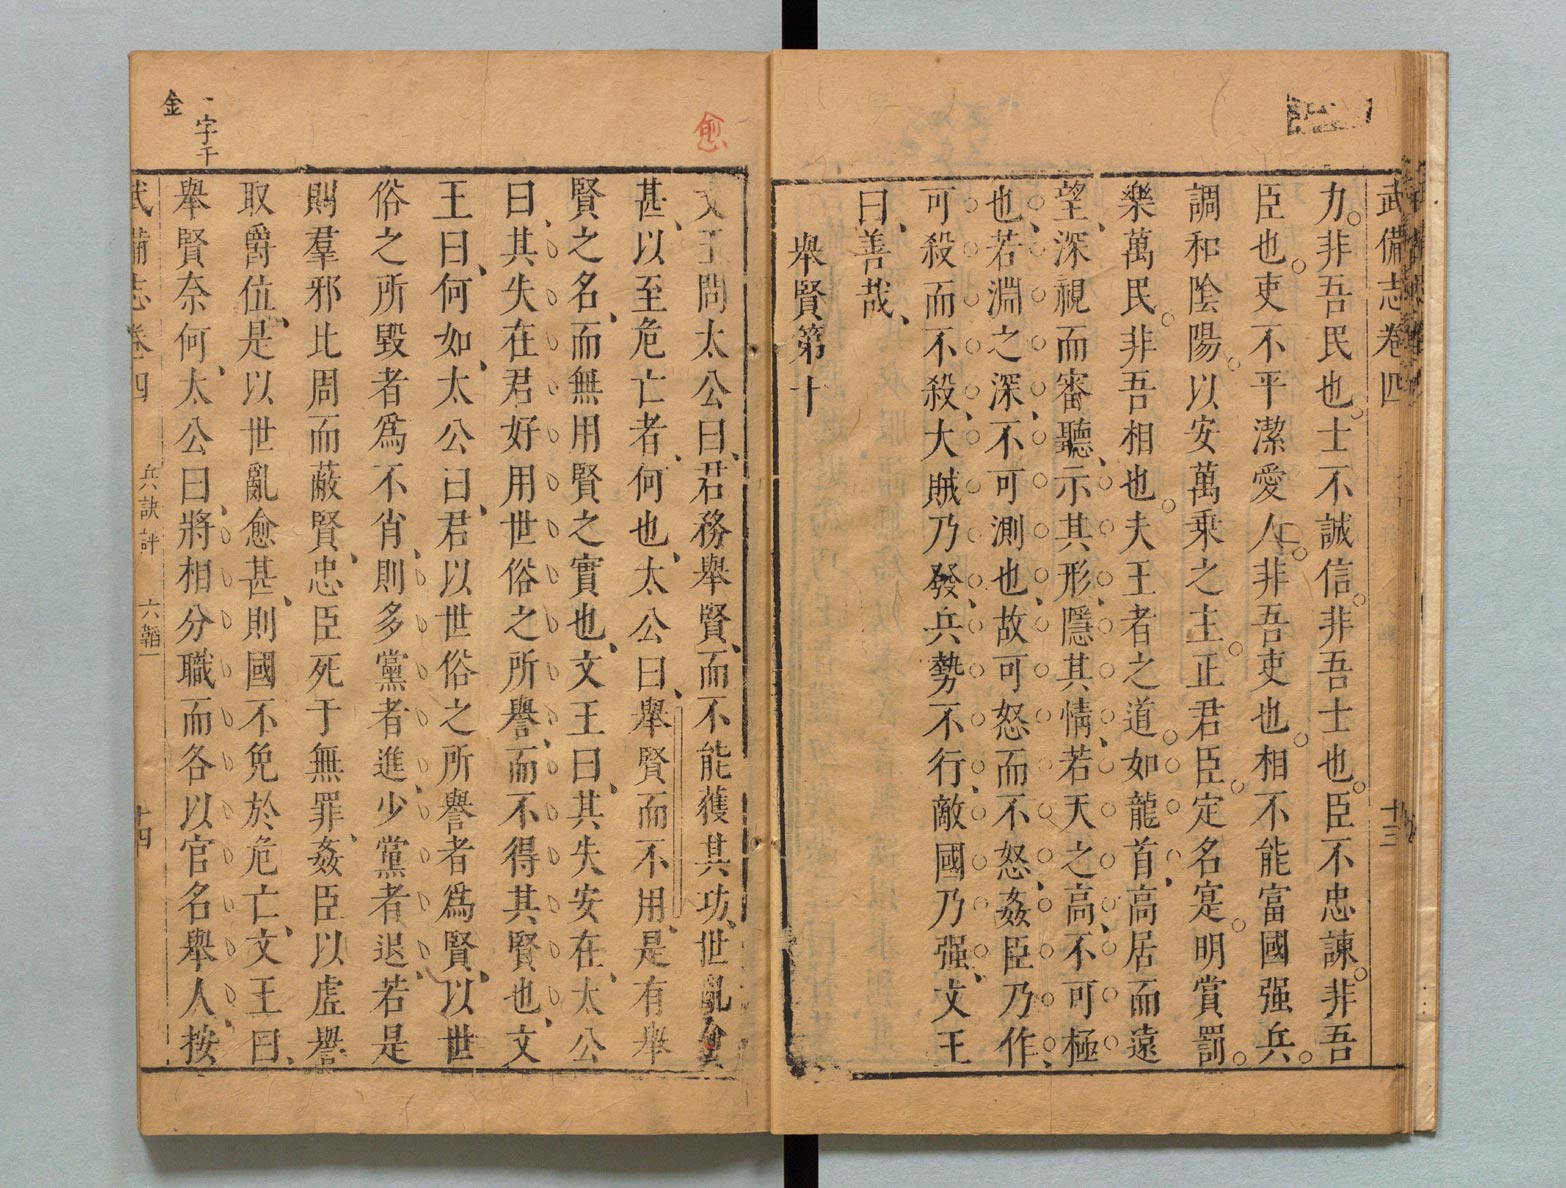 武備志卷四
十三
力。非吾民也。士不誠信。非吾士也。臣不忠諫。非吾
臣也。吏不平潔愛人。非吾吏也。相不能富國强兵。
調和陰陽。以安萬乘之主。正君臣。定名寔。明賞罰。
樂萬民。非吾相也。夫王者之道。如龍首、高居而遠
望、深視而審聽、示其形、隱其情、若天之高、不可極
也、若淵之深、不可測也、故可怒而不怒、姦臣乃作、
可殺而不殺、大賊乃發、兵勢不行、敵國乃强、文王
曰、善哉、
舉賢第十
愈
文王問太公曰、君務舉賢、而不能獲其功、世亂愈
甚、以至危亡者、何也、太公曰、舉賢而不用、是有舉
賢之名、而無用賢之實也、文王曰、其失安在、太公
曰、其失在君好用世俗之所譽、而不得其賢也、文
王曰、何如、太公曰、君以世俗之所譽者爲賢、以世
俗之所毀者爲不肖、則多黨者進、少黨者退、若是
則羣邪比周而蔽賢、忠臣死于無罪、姦臣以虛譽
取爵位、是以世亂愈甚、則國不免於危亡、文王曰、
舉賢奈何、太公曰、將相分職而各以官名舉人、按
一字千
金
武備志卷四
兵訣評
六韜一
十四